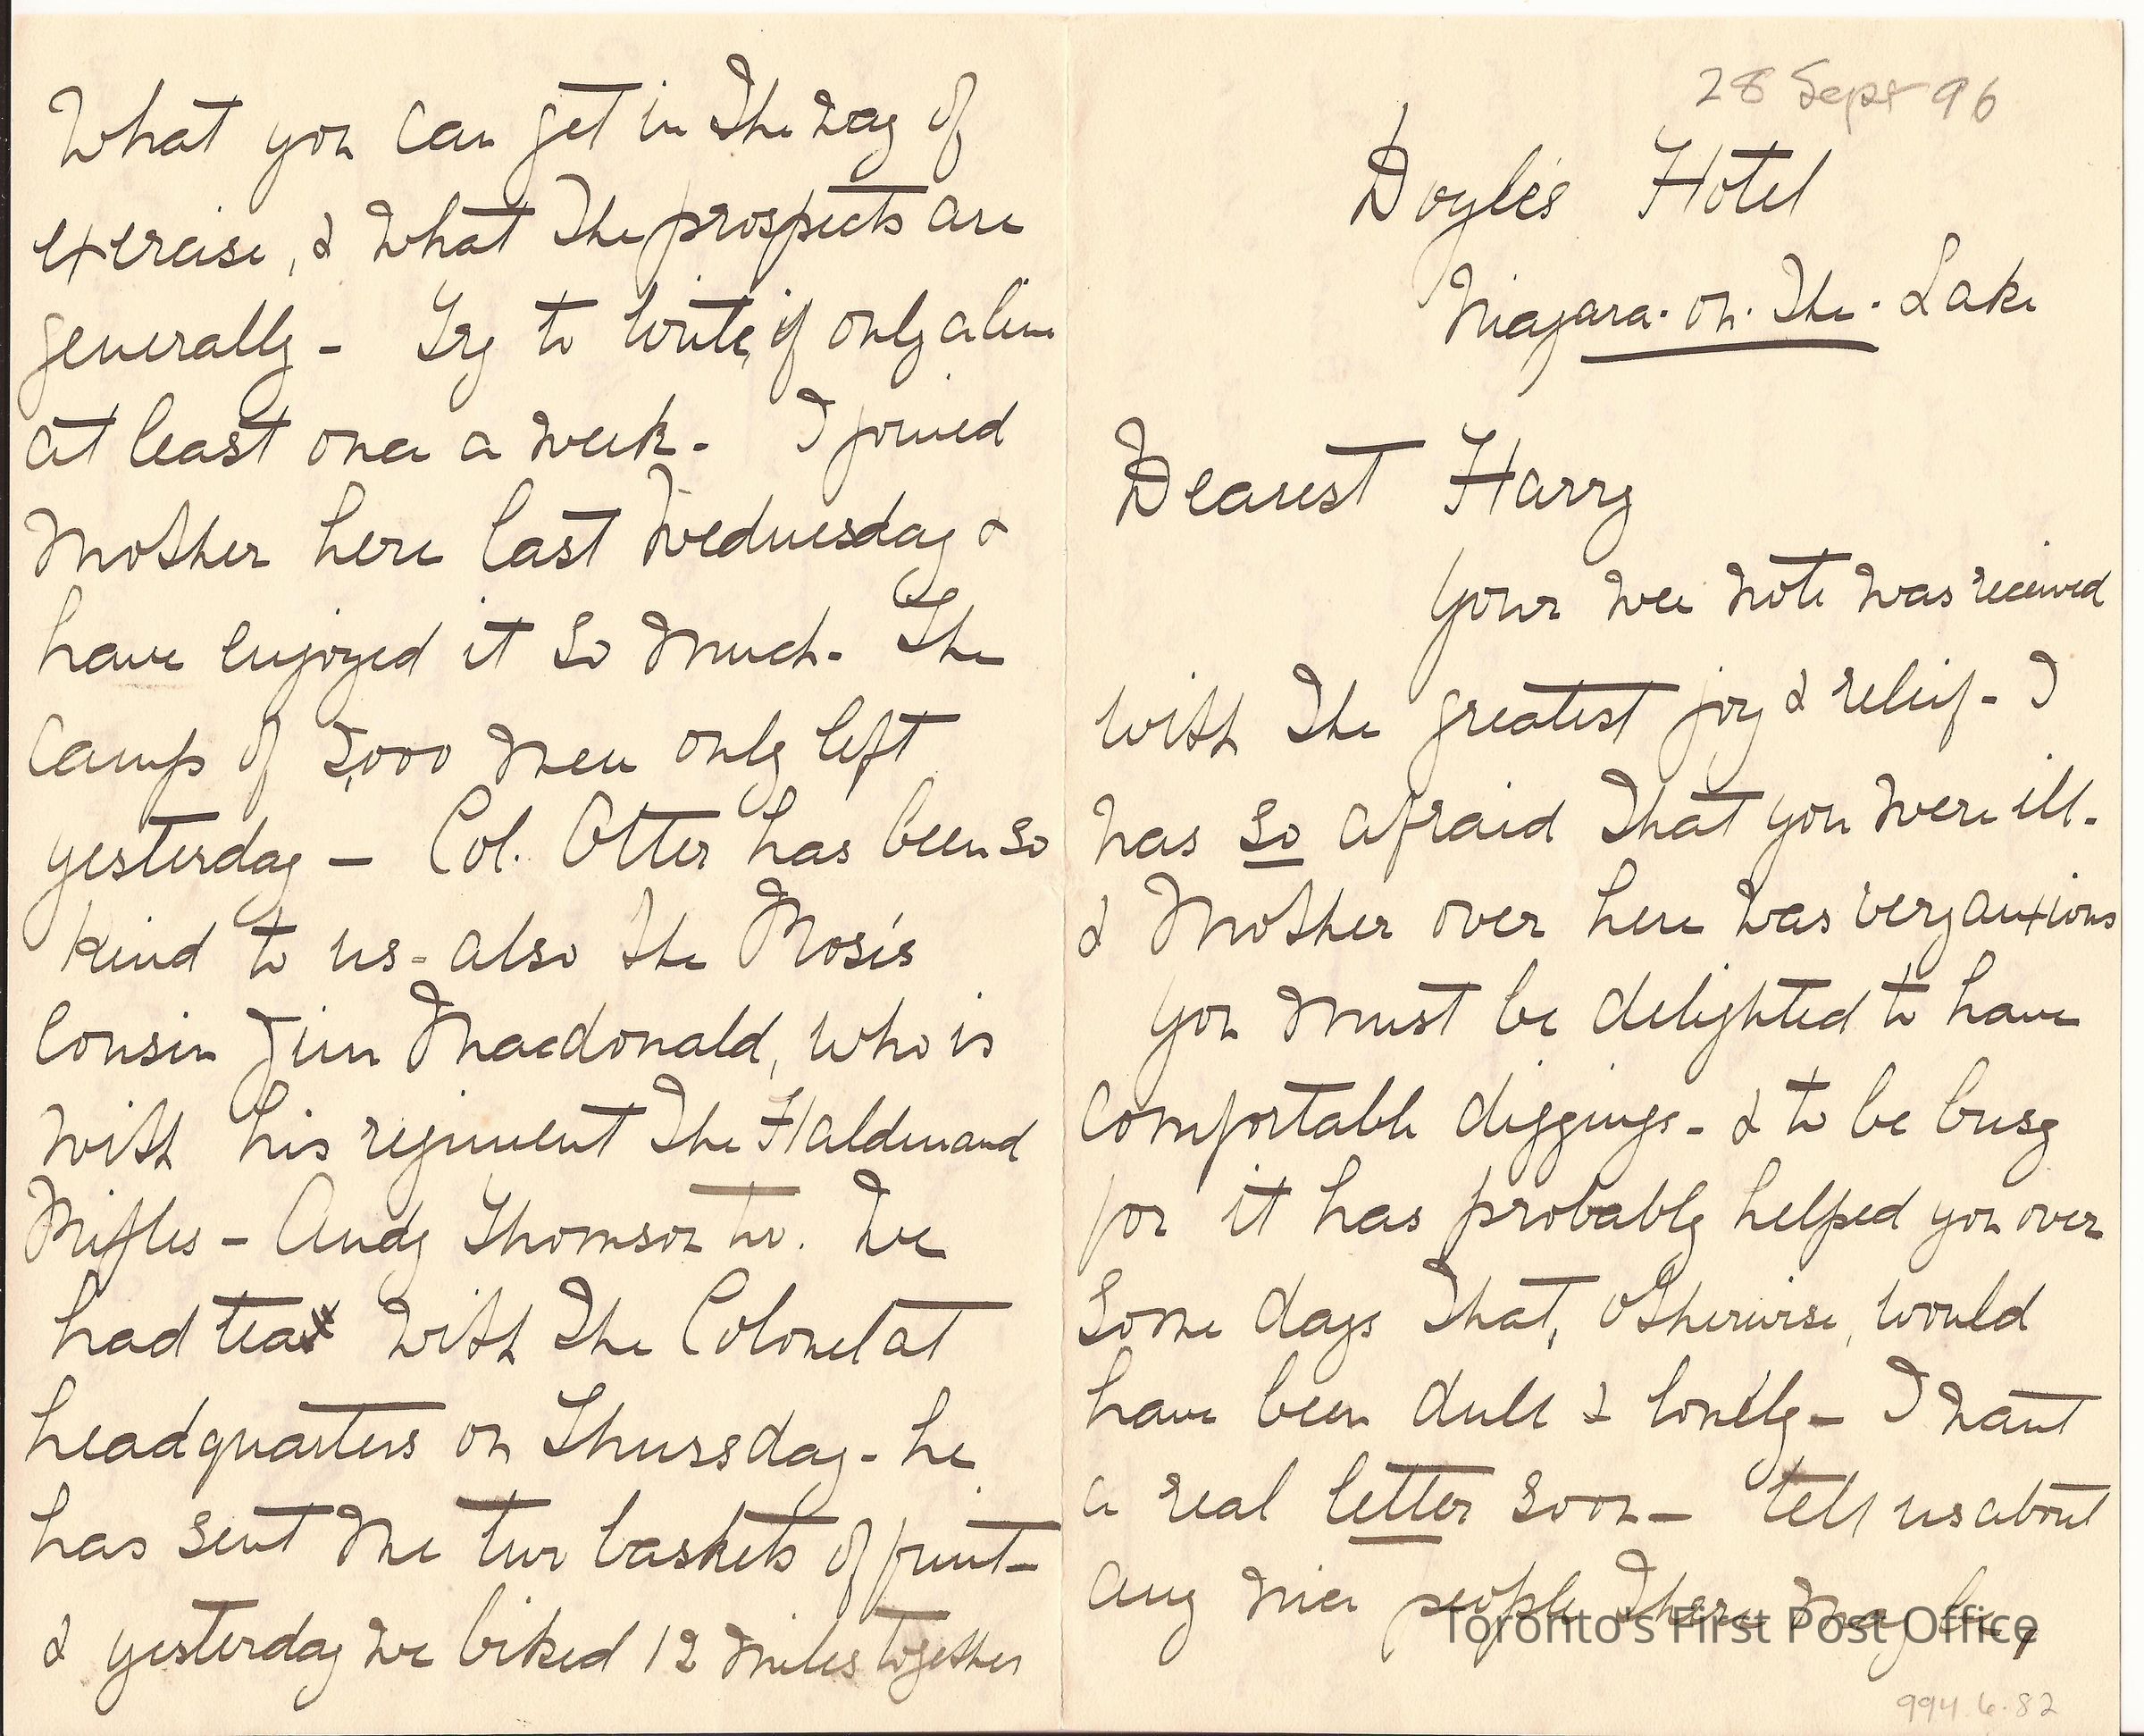 28 Sept 96
Doyle's Hotel
Niagara-on-The-Lake
Dearest Harry
Your wee note was received
with The greatest joy & relief - I
was so afraid That you were ill.
& Mother over here was very anxious
You must be delighted to have
comfortable diggings - & to be busy
for it has probably helped you over
some days That, otherwise, would
have been dull & lonely - I want
a real letter soon - tell us about
any nice people There may be,
Toronto's First Post Office
994.6.82
What you can get in The way of
exercise, & what The prospects are
generally - Try to write, if only a line
at least once a week. I joined
Mother here last Wednesday &
have enjoyed it so much. The
camp of 5,000 men only left
yesterday - Col. Otter has been so
kind to us - also the
Cousin Jim Macdonald, who is
with his regiment The Haldimand
Rifles - Andy Thomson too. We
had tea with The Colonel at
headquarters on Thursday - he
has sent me two baskets of fruit -
& yesterday we biked 12 miles together